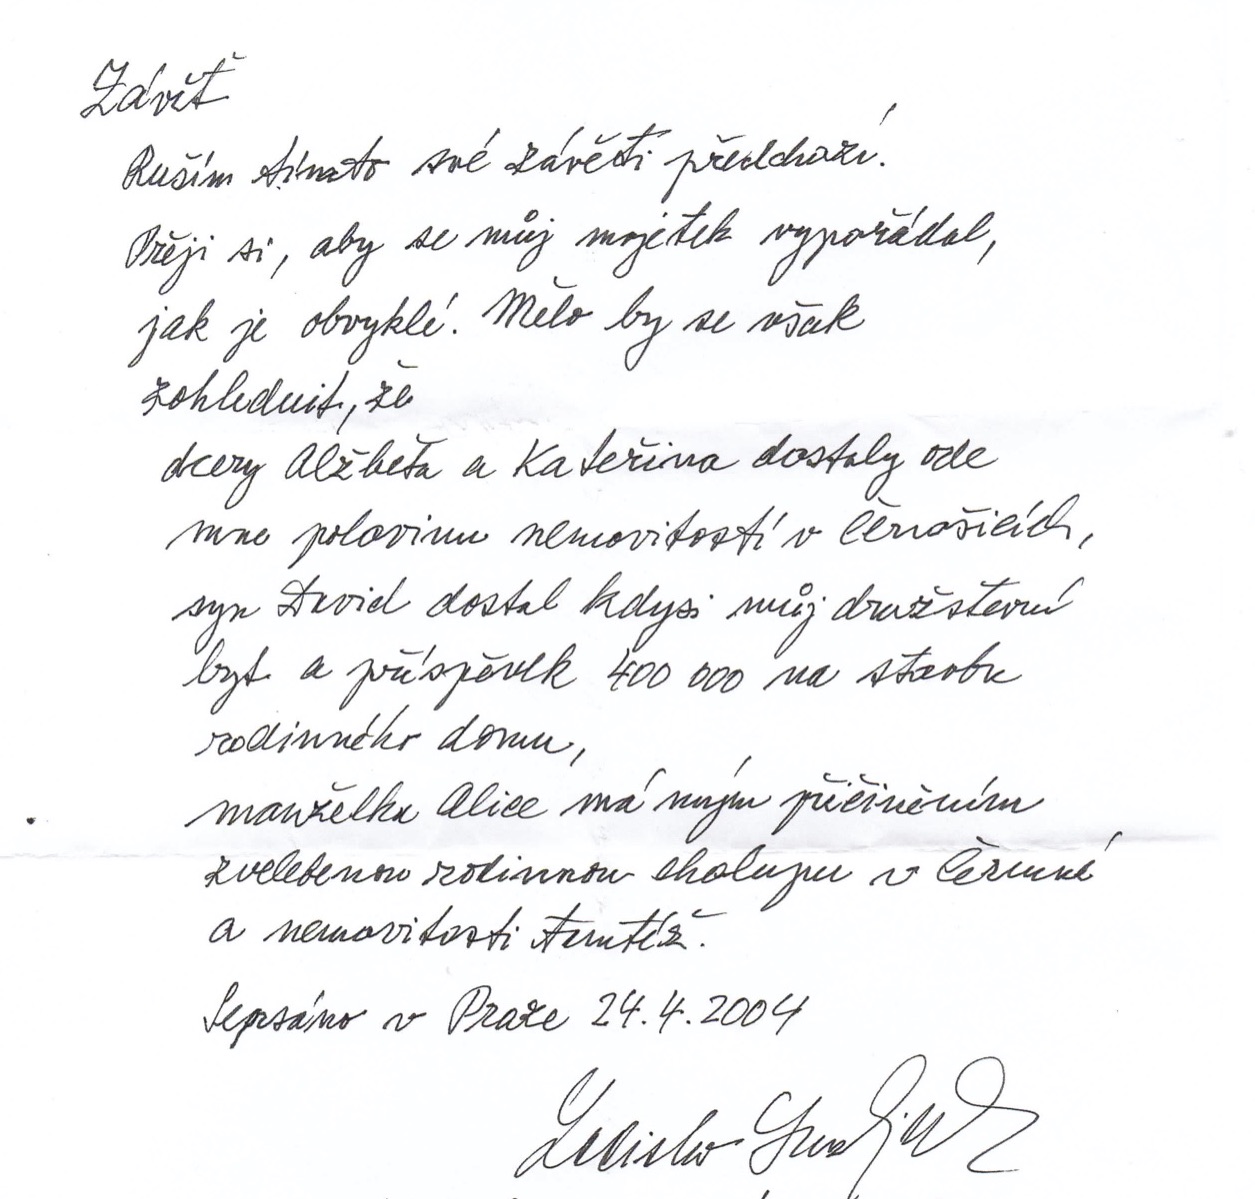 Závěť
Ruším tímto své závěti předchozí.
Přeji si, aby se můj majetek vypořádal,
jak je obvyklé. Mělo by se však
zohlednit, že
dcery Alžběta a Kateřina dostaly ode
mne polovinu nemovitostí v Černošicích,
syn David dostal kdysi můj družstevní
byt a příspěvek 400 000 na stavbu
rodinného domu,
manželka Alice má mým přičiněním
zvelebenou rodinnou chalupu v Čermné
a nemovitosti tamtéž.
Sepsáno v Praze 24.4.2004
Ladislav